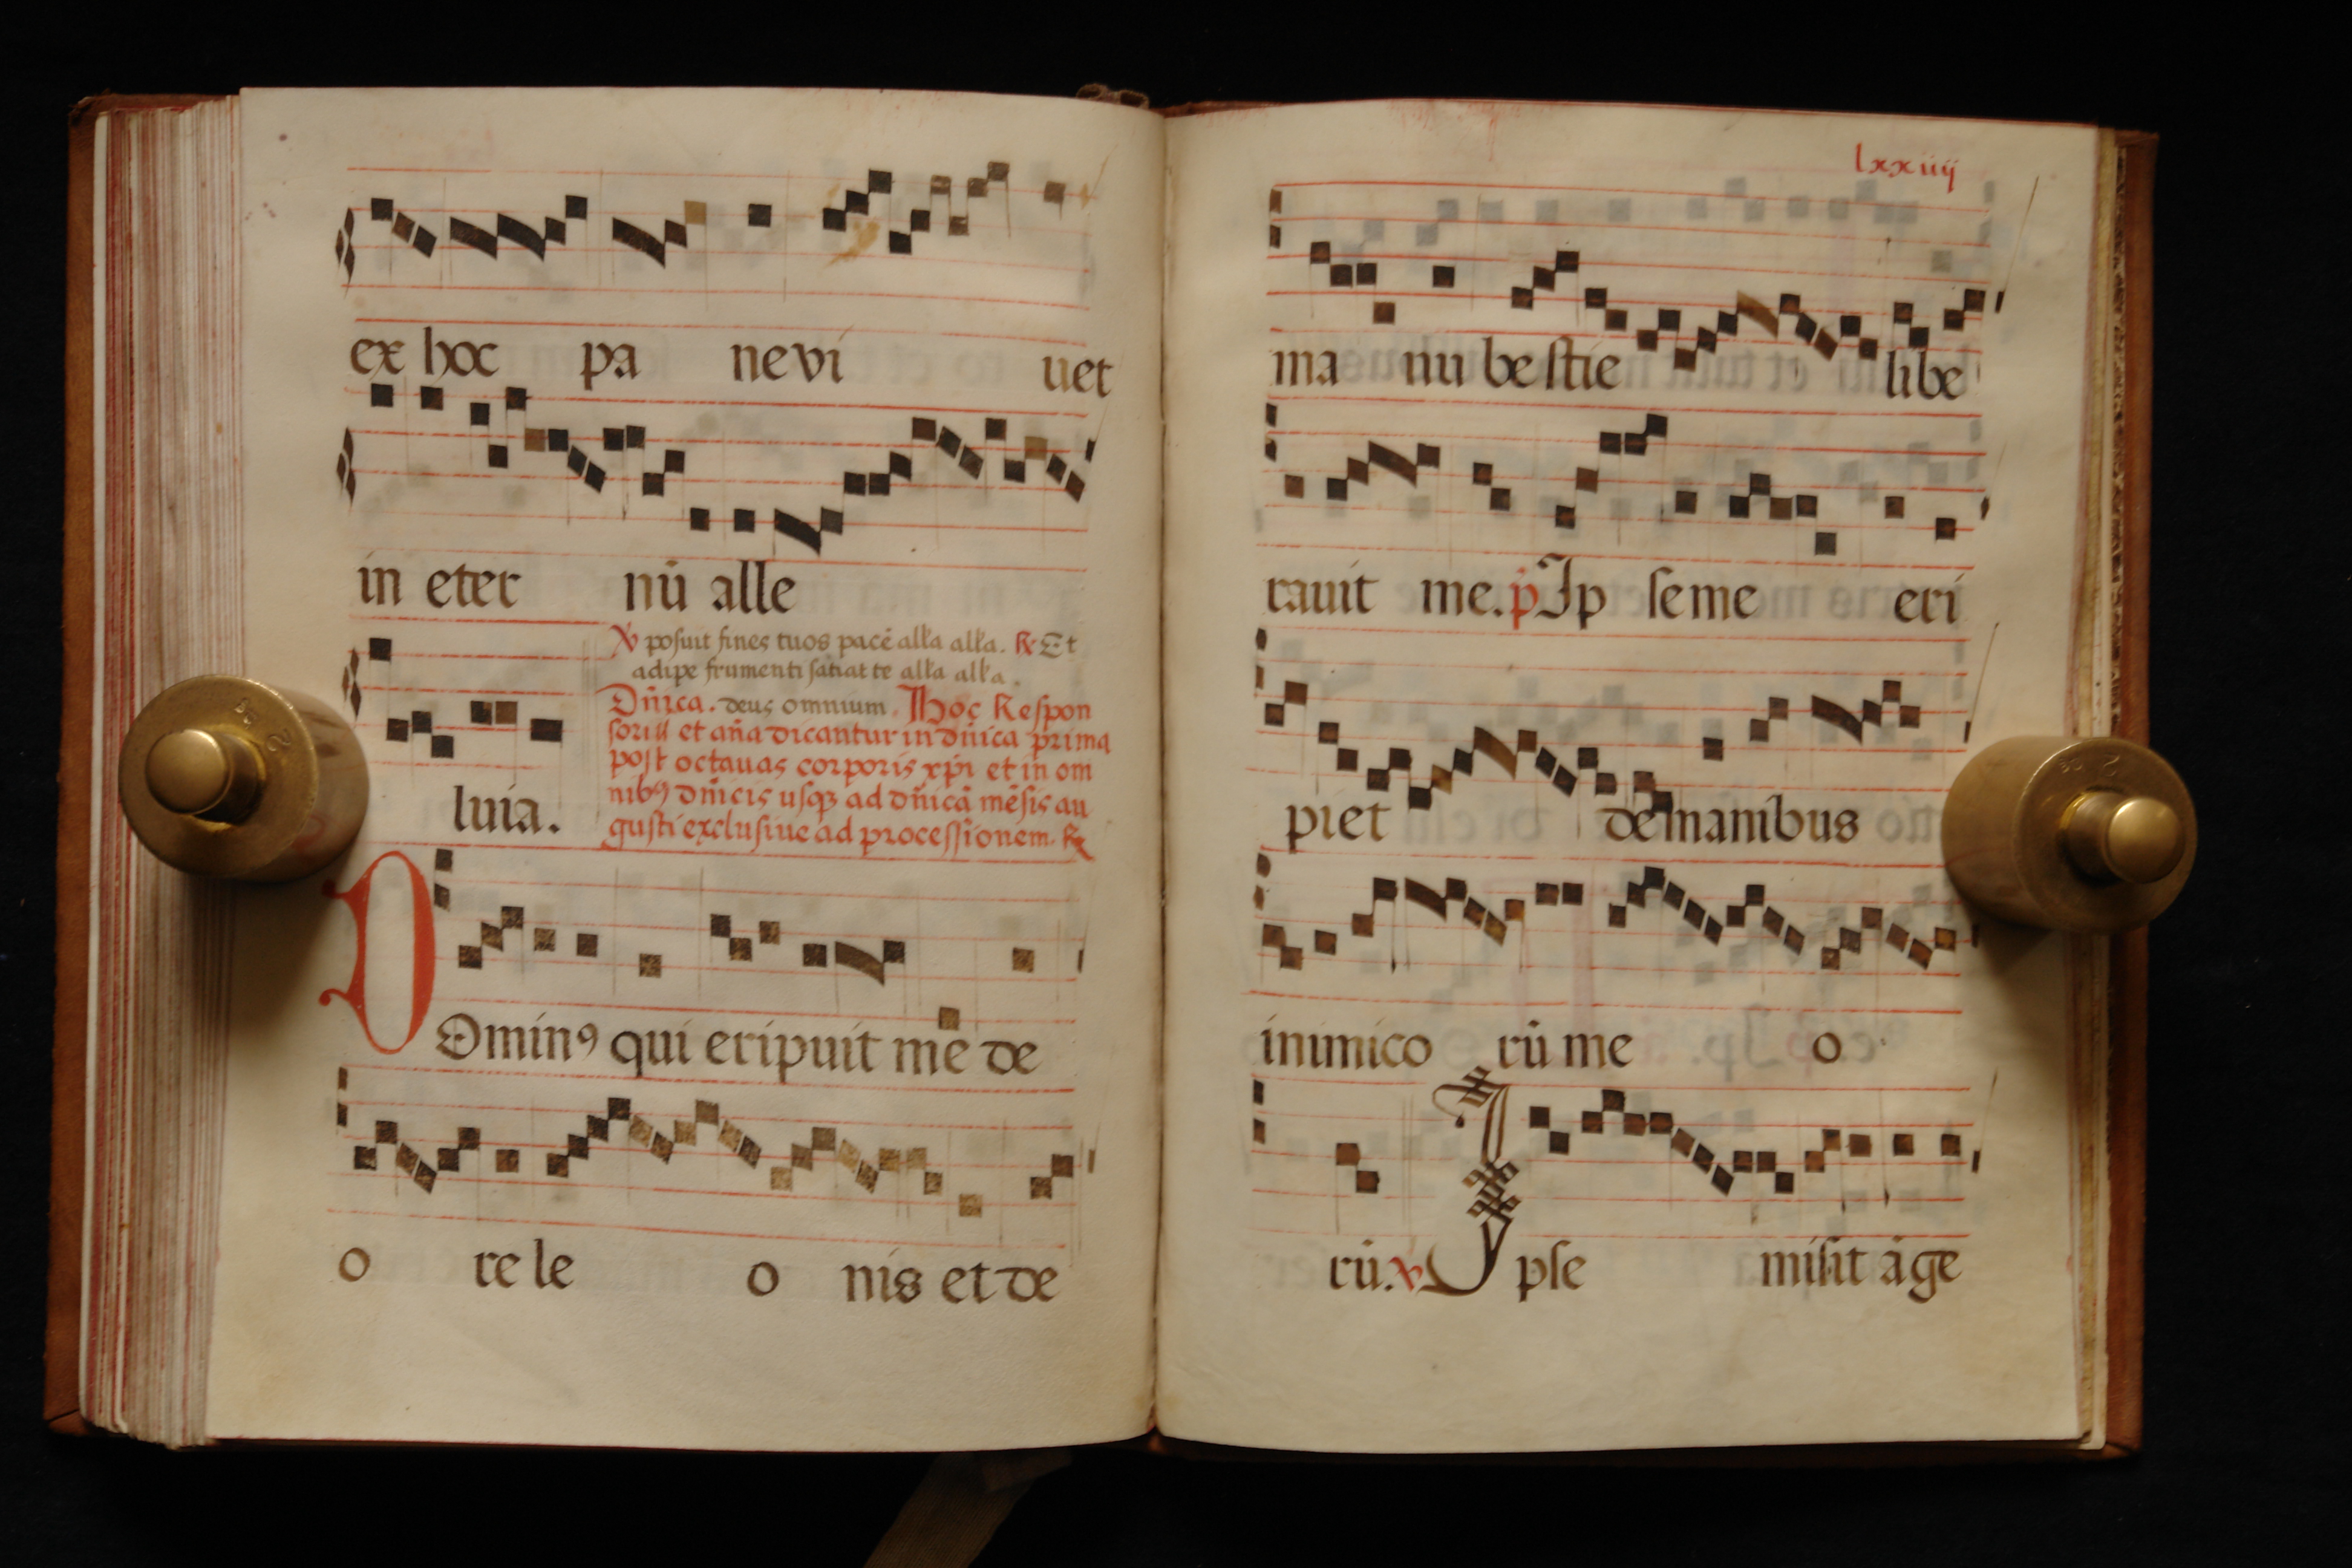 ex hoc pa ne vi uet
in eter nū alle
℣ posuit fines tuos pacē alla alla. ℟ Et
adipe frumenti satiat te alla alla.
Dn̄ica. deus omnium. Hoc Respon
soriū et an̄a dicantur in dn̄ica prima
post octauas corporis xp̄i et in om
nibꝰ dn̄icis usqꝫ ad dn̄icā mēsis au
gusti exclusiue ad processionem. ℟
luia.
D Ominꝰ qui eripuit me de
o re le o nis et de
lxxiiij
ma nu be stie libe
rauit me. p̄ Ip se me eri
piet de manibus
inimico rū me o
rū. ℣ I pse misit āge